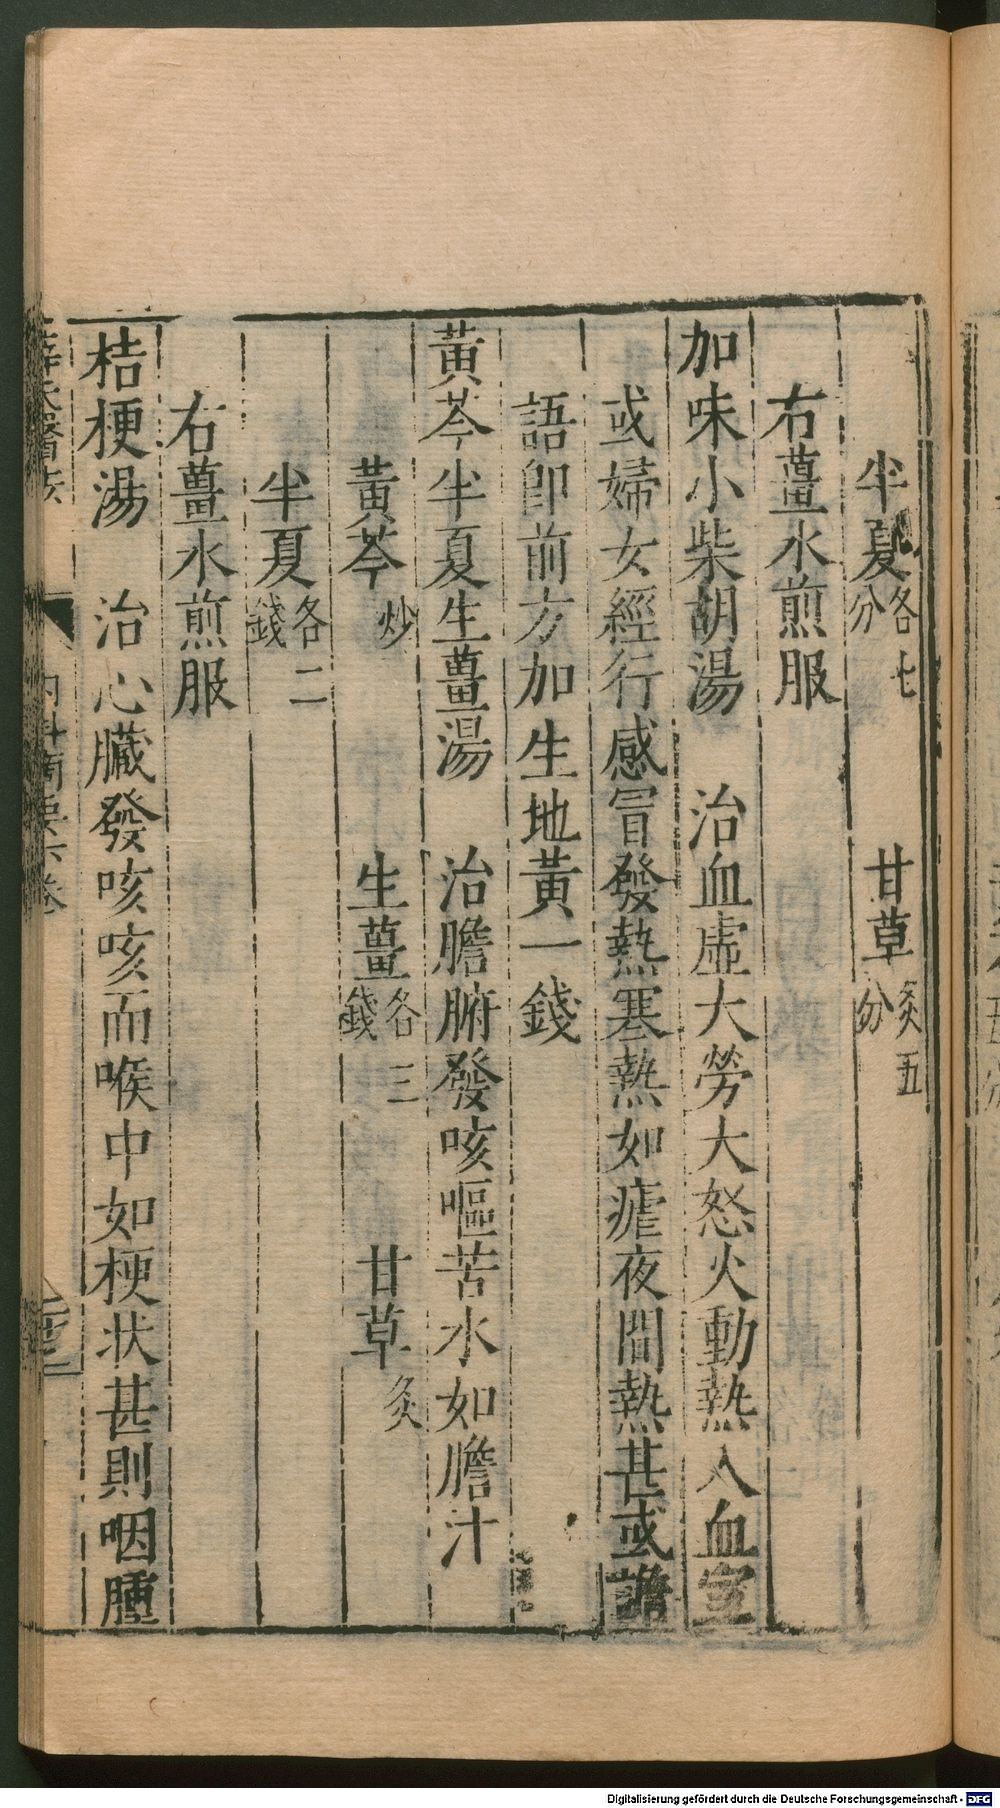 半夏各七分　甘草炙五分
右薑水煎服
加味小柴胡湯　治血虛大勞大怒火動熱入血室
或婦女經行感冒發熱寒熱如瘧夜間熱甚或譫
語卽前方加生地黃一錢
黃芩半夏生薑湯　治膽腑發咳嘔苦水如膽汁
黃芩炒　生薑各三錢　甘草炙
半夏各二錢
右薑水煎服
桔梗湯　治心臟發咳咳而喉中如梗状甚則咽腫
內科摘要下卷
Digitalisierung gefördert durch die Deutsche Forschungsgemeinschaft - DFG